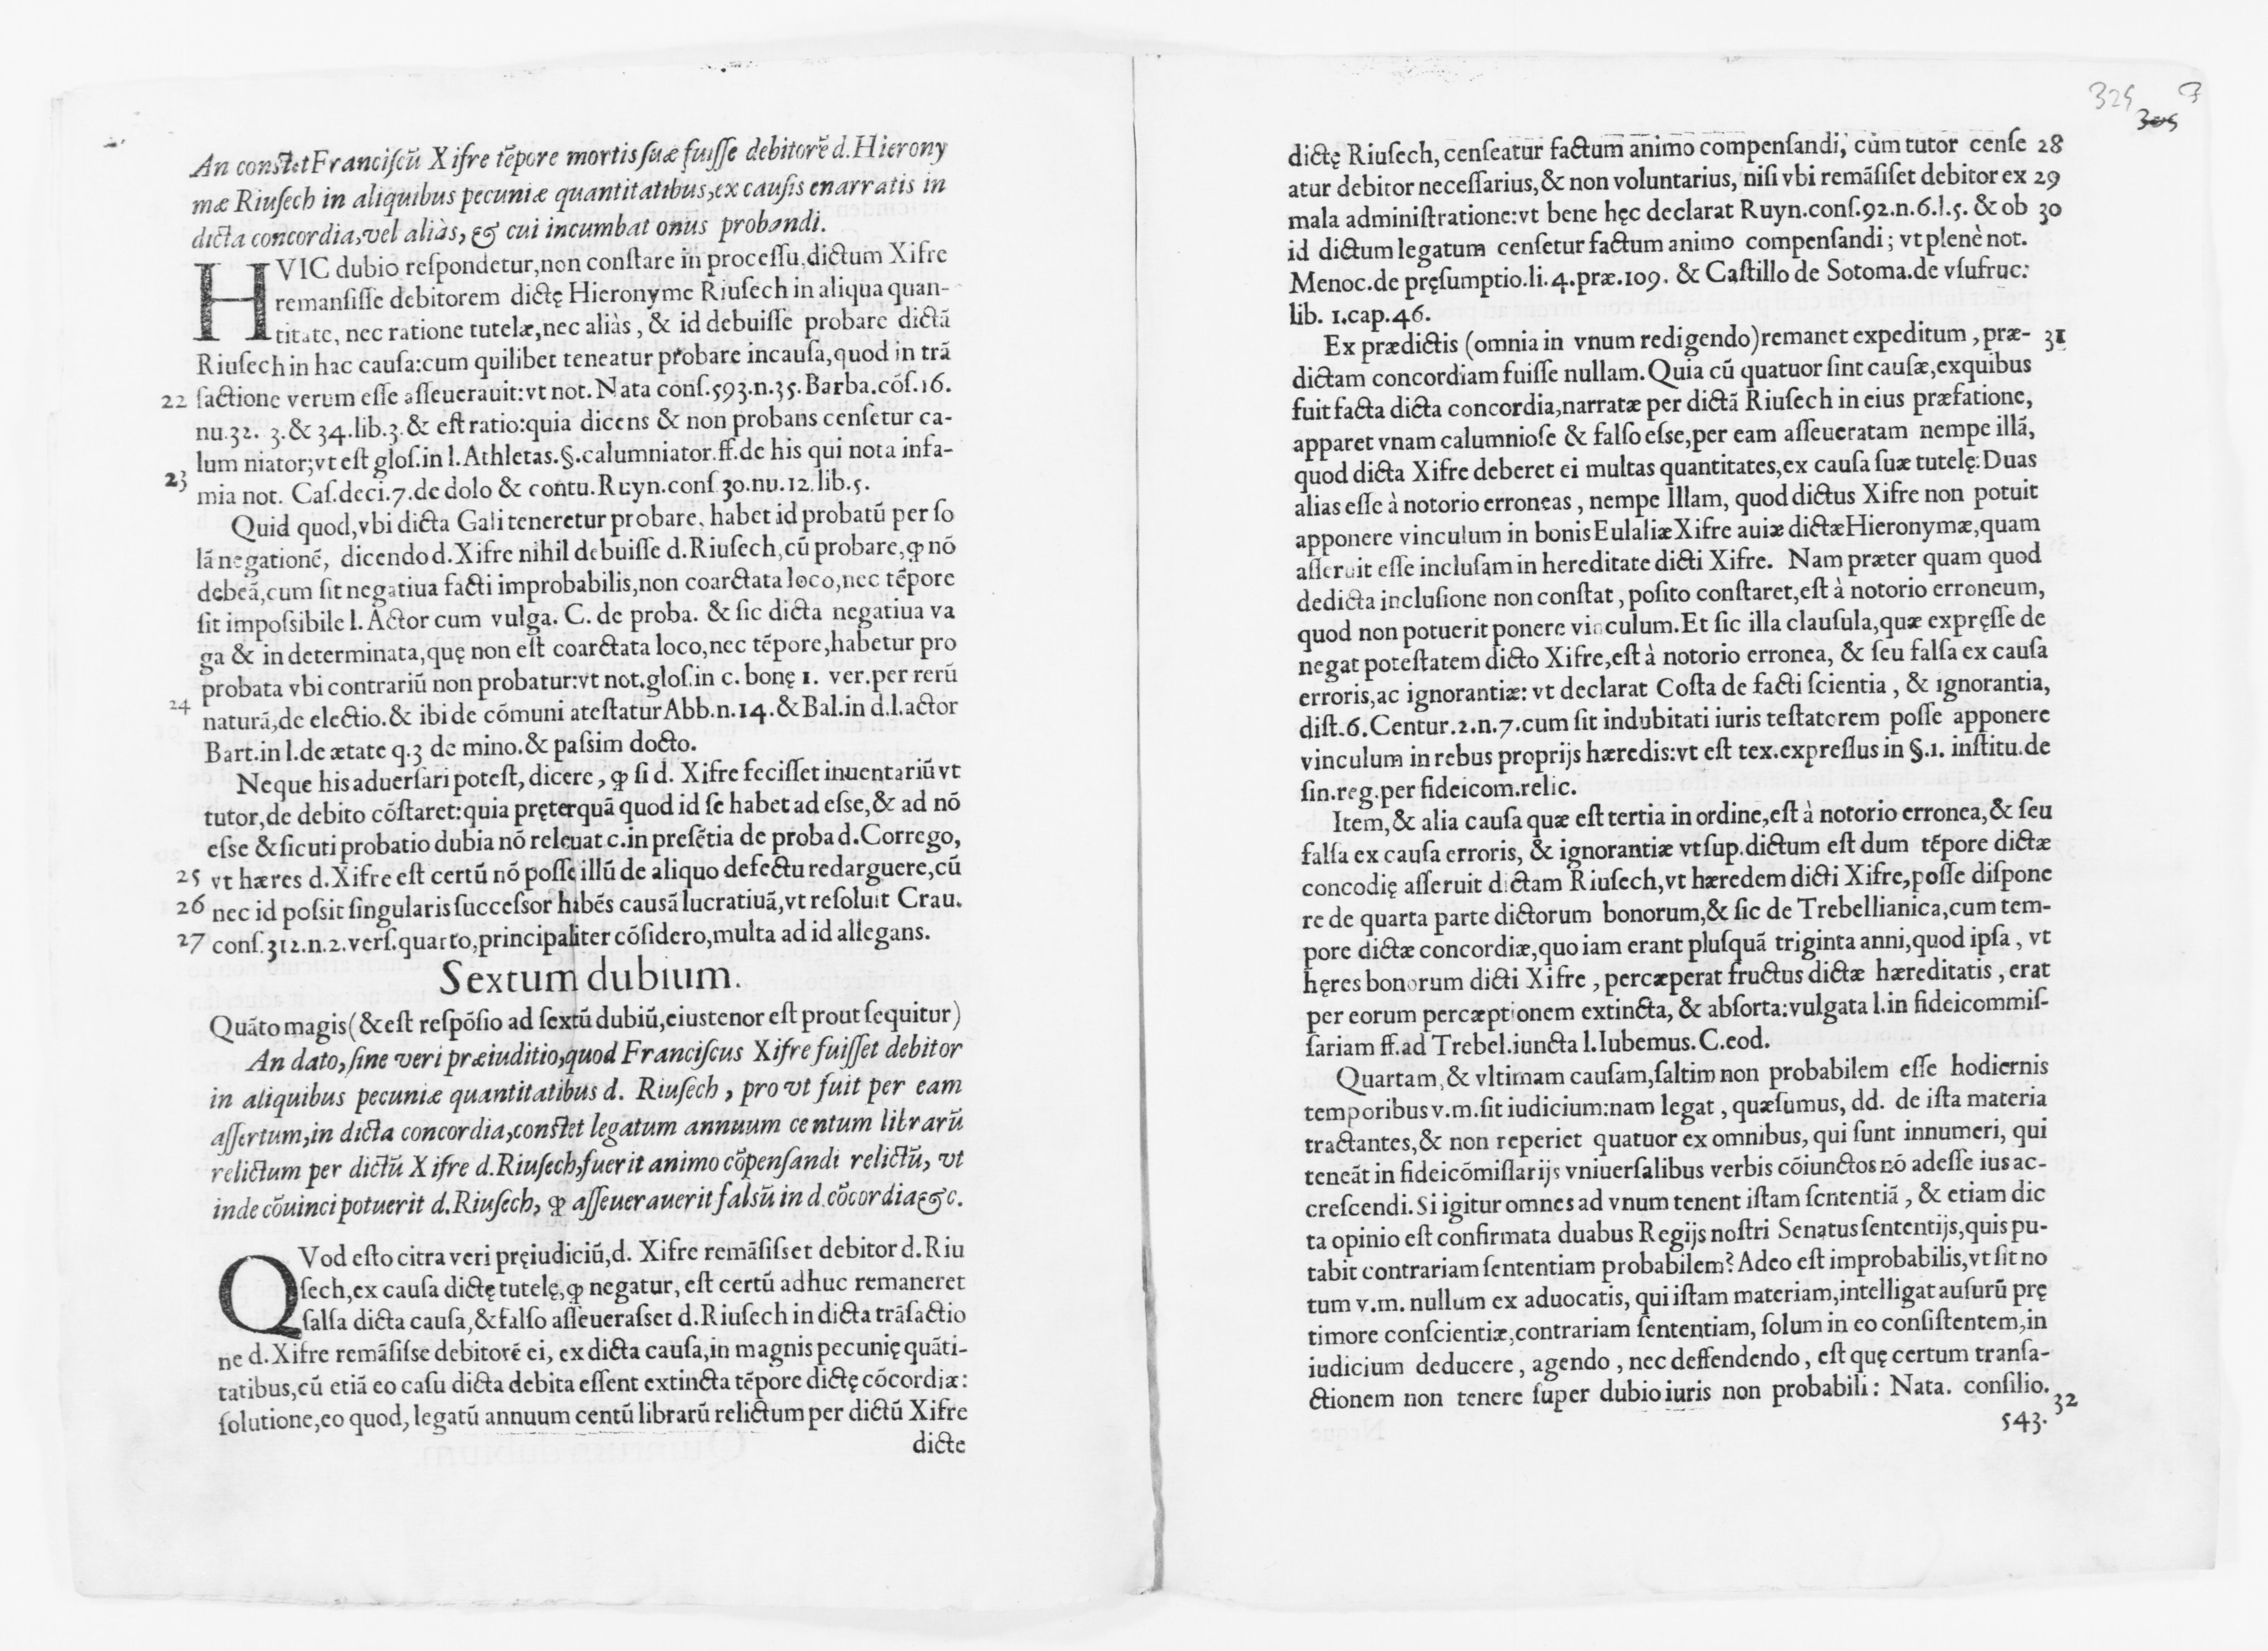 An constet Franciſcũ Xifre tẽpore mortis ſuæ fuiſſe debitorẽ d. Hierony
mæ Riuſech in aliquibus pecuniæ quantitatibus, ex cauſis enarratis in
dicta concordia, vel aliàs, & cui incumbat onus probandi.
HVIC dubio reſpondetur, non conſtare in proceſſu, dictum Xifre
remanſiſſe debitorem dictę Hieronyme Riuſech in aliqua quan-
titate, nec ratione tutelæ, nec aliàs, & id debuiſſe probare dictã
Riuſech in hac cauſa: cum quilibet teneatur probare incauſa, quod in trã
22 ſactione verum eſſe aſſeuerauit: vt not. Nata conſ. 593. n. 35. Barba. cõſ. 16.
nu. 32. 3. & 34. lib. 3. & eſt ratio: quia dicens & non probans cenſetur ca-
lum niator; vt eſt gloſ. in l. Athletas. §. calumniator. ff. de his qui nota infa-
23 mia not. Caſ. deci. 7. de dolo & contu. Ruyn. conſ. 30. nu. 12. lib. 5.
Quid quod, vbi dicta Gali teneretur probare, habet id probatũ per ſo
lã negationẽ, dicendo d. Xifre nihil debuiſſe d. Riuſech, cũ probare, ꝙ nõ
debeã, cum ſit negatiua facti improbabilis, non coarctata loco, nec tẽpore
ſit impoſsibile l. Actor cum vulga. C. de proba. & ſic dicta negatiua va
ga & in determinata, quę non eſt coarctata loco, nec tẽpore, habetur pro
probata vbi contrariũ non probatur: vt not. gloſ. in c. bonę 1. ver. per rerũ
24 naturã, de electio. & ibi de cõmuni ateſtatur Abb. n. 14. & Bal. in d. l. actor
Bart. in l. de ætate q. 3 de mino. & paſsim docto.
Neque his aduerſari poteſt, dicere, ꝙ ſi d. Xifre feciſſet inuentariũ vt
tutor, de debito cõſtaret: quia pręterquã quod id ſe habet ad eſse, & ad nõ
eſse & ſicuti probatio dubia nõ releuat c. in preſẽtia de proba d. Corrego,
25 vt hæres d. Xifre eſt certũ nõ poſſe illũ de aliquo defectu redarguere, cũ
26 nec id poſsit ſingularis ſucceſsor hibẽs cauſã lucratiuã, vt reſoluit Crau.
27 conſ. 312. n. 2. verſ. quarto, principaliter cõſidero, multa ad id allegans.
Sextum dubium.
Quãto magis (& eſt reſpõſio ad ſextũ dubiũ, eius tenor eſt prout ſequitur)
An dato, ſine veri præiuditio, quod Franciſcus Xifre fuiſſet debitor
in aliquibus pecuniæ quantitatibus d. Riuſech, pro vt fuit per eam
aſſertum, in dicta concordia, constet legatum annuum centum librarũ
relictum per dictũ Xifre d. Riuſech, fuerit animo cõpenſandi relictũ, vt
inde cõuinci potuerit d. Riuſech, ꝙ aſſeuerauerit falsũ in d. cõcordia &c.
QVod eſto citra veri pręiudiciũ, d. Xifre remãſiſset debitor d. Riu
ſech, ex cauſa dictę tutelę, ꝙ negatur, eſt certũ adhuc remaneret
falſa dicta cauſa, & falſo aſſeueraſset d. Riuſech in dicta trãſactio
ne d. Xifre remãſiſse debitorẽ ei, ex dicta cauſa, in magnis pecunię quãti-
tatibus, cũ etiã eo caſu dicta debita eſſent extincta tẽpore dictę cõcordiæ:
ſolutione, eo quod, legatũ annuum centũ librarũ relictum per dictũ Xifre
dicte
325 7
305
dictę Riuſech, cenſeatur factum animo compenſandi, cùm tutor cenſe 28
atur debitor neceſſarius, & non voluntarius, niſi vbi remãſiſet debitor ex 29
mala adminiſtratione: vt bene hęc declarat Ruyn. conſ. 92. n. 6. l. 5. & ob 30
id dictum legatum cenſetur factum animo compenſandi; vt plenè not.
Menoc. de pręſumptio. li. 4. præ. 109. & Caſtillo de Sotoma. de vſufruc:
lib. 1. cap. 46.
Ex prædictis (omnia in vnum redigendo) remanet expeditum, præ- 31
dictam concordiam fuiſſe nullam. Quia cũ quatuor ſint cauſæ, exquibus
fuit facta dicta concordia, narratæ per dictã Riuſech in eius præfatione,
apparet vnam calumnioſe & falſo eſse, per eam aſſeueratam nempe illã,
quod dicta Xifre deberet ei multas quantitates, ex cauſa ſuæ tutelę: Duas
alias eſſe à notorio erroneas, nempe Illam, quod dictus Xifre non potuit
apponere vinculum in bonis Eulaliæ Xifre auiæ dictæ Hieronymæ, quam
aſſeruit eſſe incluſam in hereditate dicti Xifre. Nam præter quam quod
dedicta incluſione non conſtat, poſito conſtaret, eſt à notorio erroneum,
quod non potuerit ponere vinculum. Et ſic illa clauſula, quæ expręſſe de
negat poteſtatem dicto Xifre, eſt à notorio erronea, & ſeu falſa ex cauſa
erroris, ac ignorantiæ: vt declarat Coſta de facti ſcientia, & ignorantia,
diſt. 6. Centur. 2. n. 7. cum ſit indubitati iuris teſtatorem poſſe apponere
vinculum in rebus proprijs hæredis: vt eſt tex. expreſſus in §. 1. inſtitu. de
ſin. reg. per fideicom. relic.
Item, & alia cauſa quæ eſt tertia in ordine, eſt à notorio erronea, & ſeu
falſa ex cauſa erroris, & ignorantiæ vt ſup. dictum eſt dum tẽpore dictæ
concodię aſſeruit dictam Riuſech, vt hæredem dicti Xifre, poſſe diſpone
re de quarta parte dictorum bonorum, & ſic de Trebellianica, cum tem-
pore dictæ concordiæ, quo iam erant pluſquã triginta anni, quod ipſa, vt
hęres bonorum dicti Xifre, percæperat fructus dictæ hæreditatis, erat
per eorum percæptionem extincta, & abſorta: vulgata l. in fideicommiſ-
ſariam ff. ad Trebel. iuncta l. Iubemus. C. eod.
Quartam, & vltimam cauſam, ſaltim non probabilem eſſe hodiernis
temporibus v. m. ſit iudicium: nam legat, quæſumus, dd. de iſta materia
tractantes, & non reperiet quatuor ex omnibus, qui ſunt innumeri, qui
teneãt in fideicõmiſſarijs vniuerſalibus verbis cõiunctos nõ adeſſe ius ac-
creſcendi. Si igitur omnes ad vnum tenent iſtam ſententiã, & etiam dic
ta opinio eſt confirmata duabus Regijs noſtri Senatus ſententijs, quis pu-
tabit contrariam ſententiam probabilem? Adeo eſt improbabilis, vt ſit no
tum v. m. nullum ex aduocatis, qui iſtam materiam, intelligat auſurũ prę
timore conſcientiæ, contrariam ſententiam, ſolum in eo conſiſtentem, in
iudicium deducere, agendo, nec deffendendo, eſt quę certum tranſa-
ctionem non tenere ſuper dubio iuris non probabili: Nata. conſilio. 32
543.